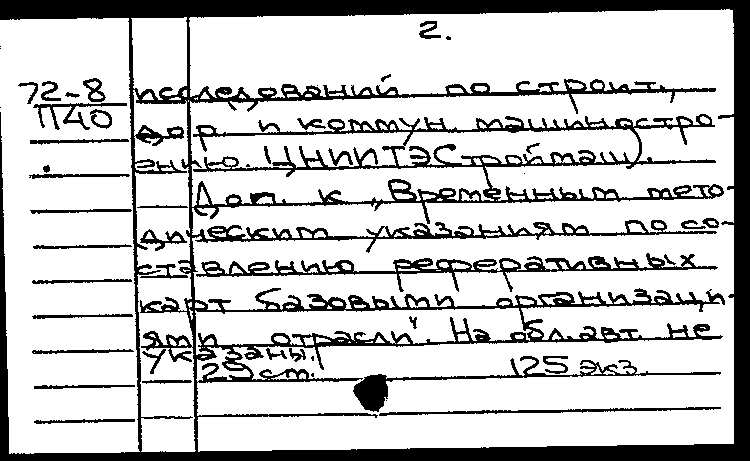 2.
72-8
П40
исследований по строит.,
дор. и коммун. машиностро-
ению. ЦНИИТЭСтроймаш).
Доп. к „Временным мето-
дическим указаниям по со-
ставлению реферативных
карт базовыми организаци-
ями отрасли". На обл. авт. не
указаны.
29 ст. 125 экз.